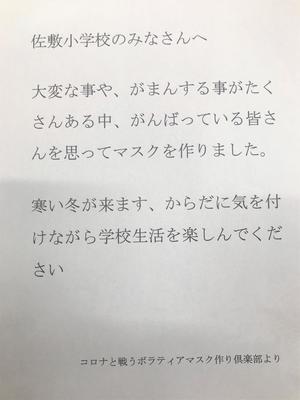 佐敷小学校のみなさんへ
大変な事や、がまんする事がたく
さんある中、がんばっている皆さ
んを思ってマスクを作りました。
寒い冬が来ます、からだに気を付
けながら学校生活を楽しんでくだ
さい
コロナと戦うボラティアマスク作り倶楽部より